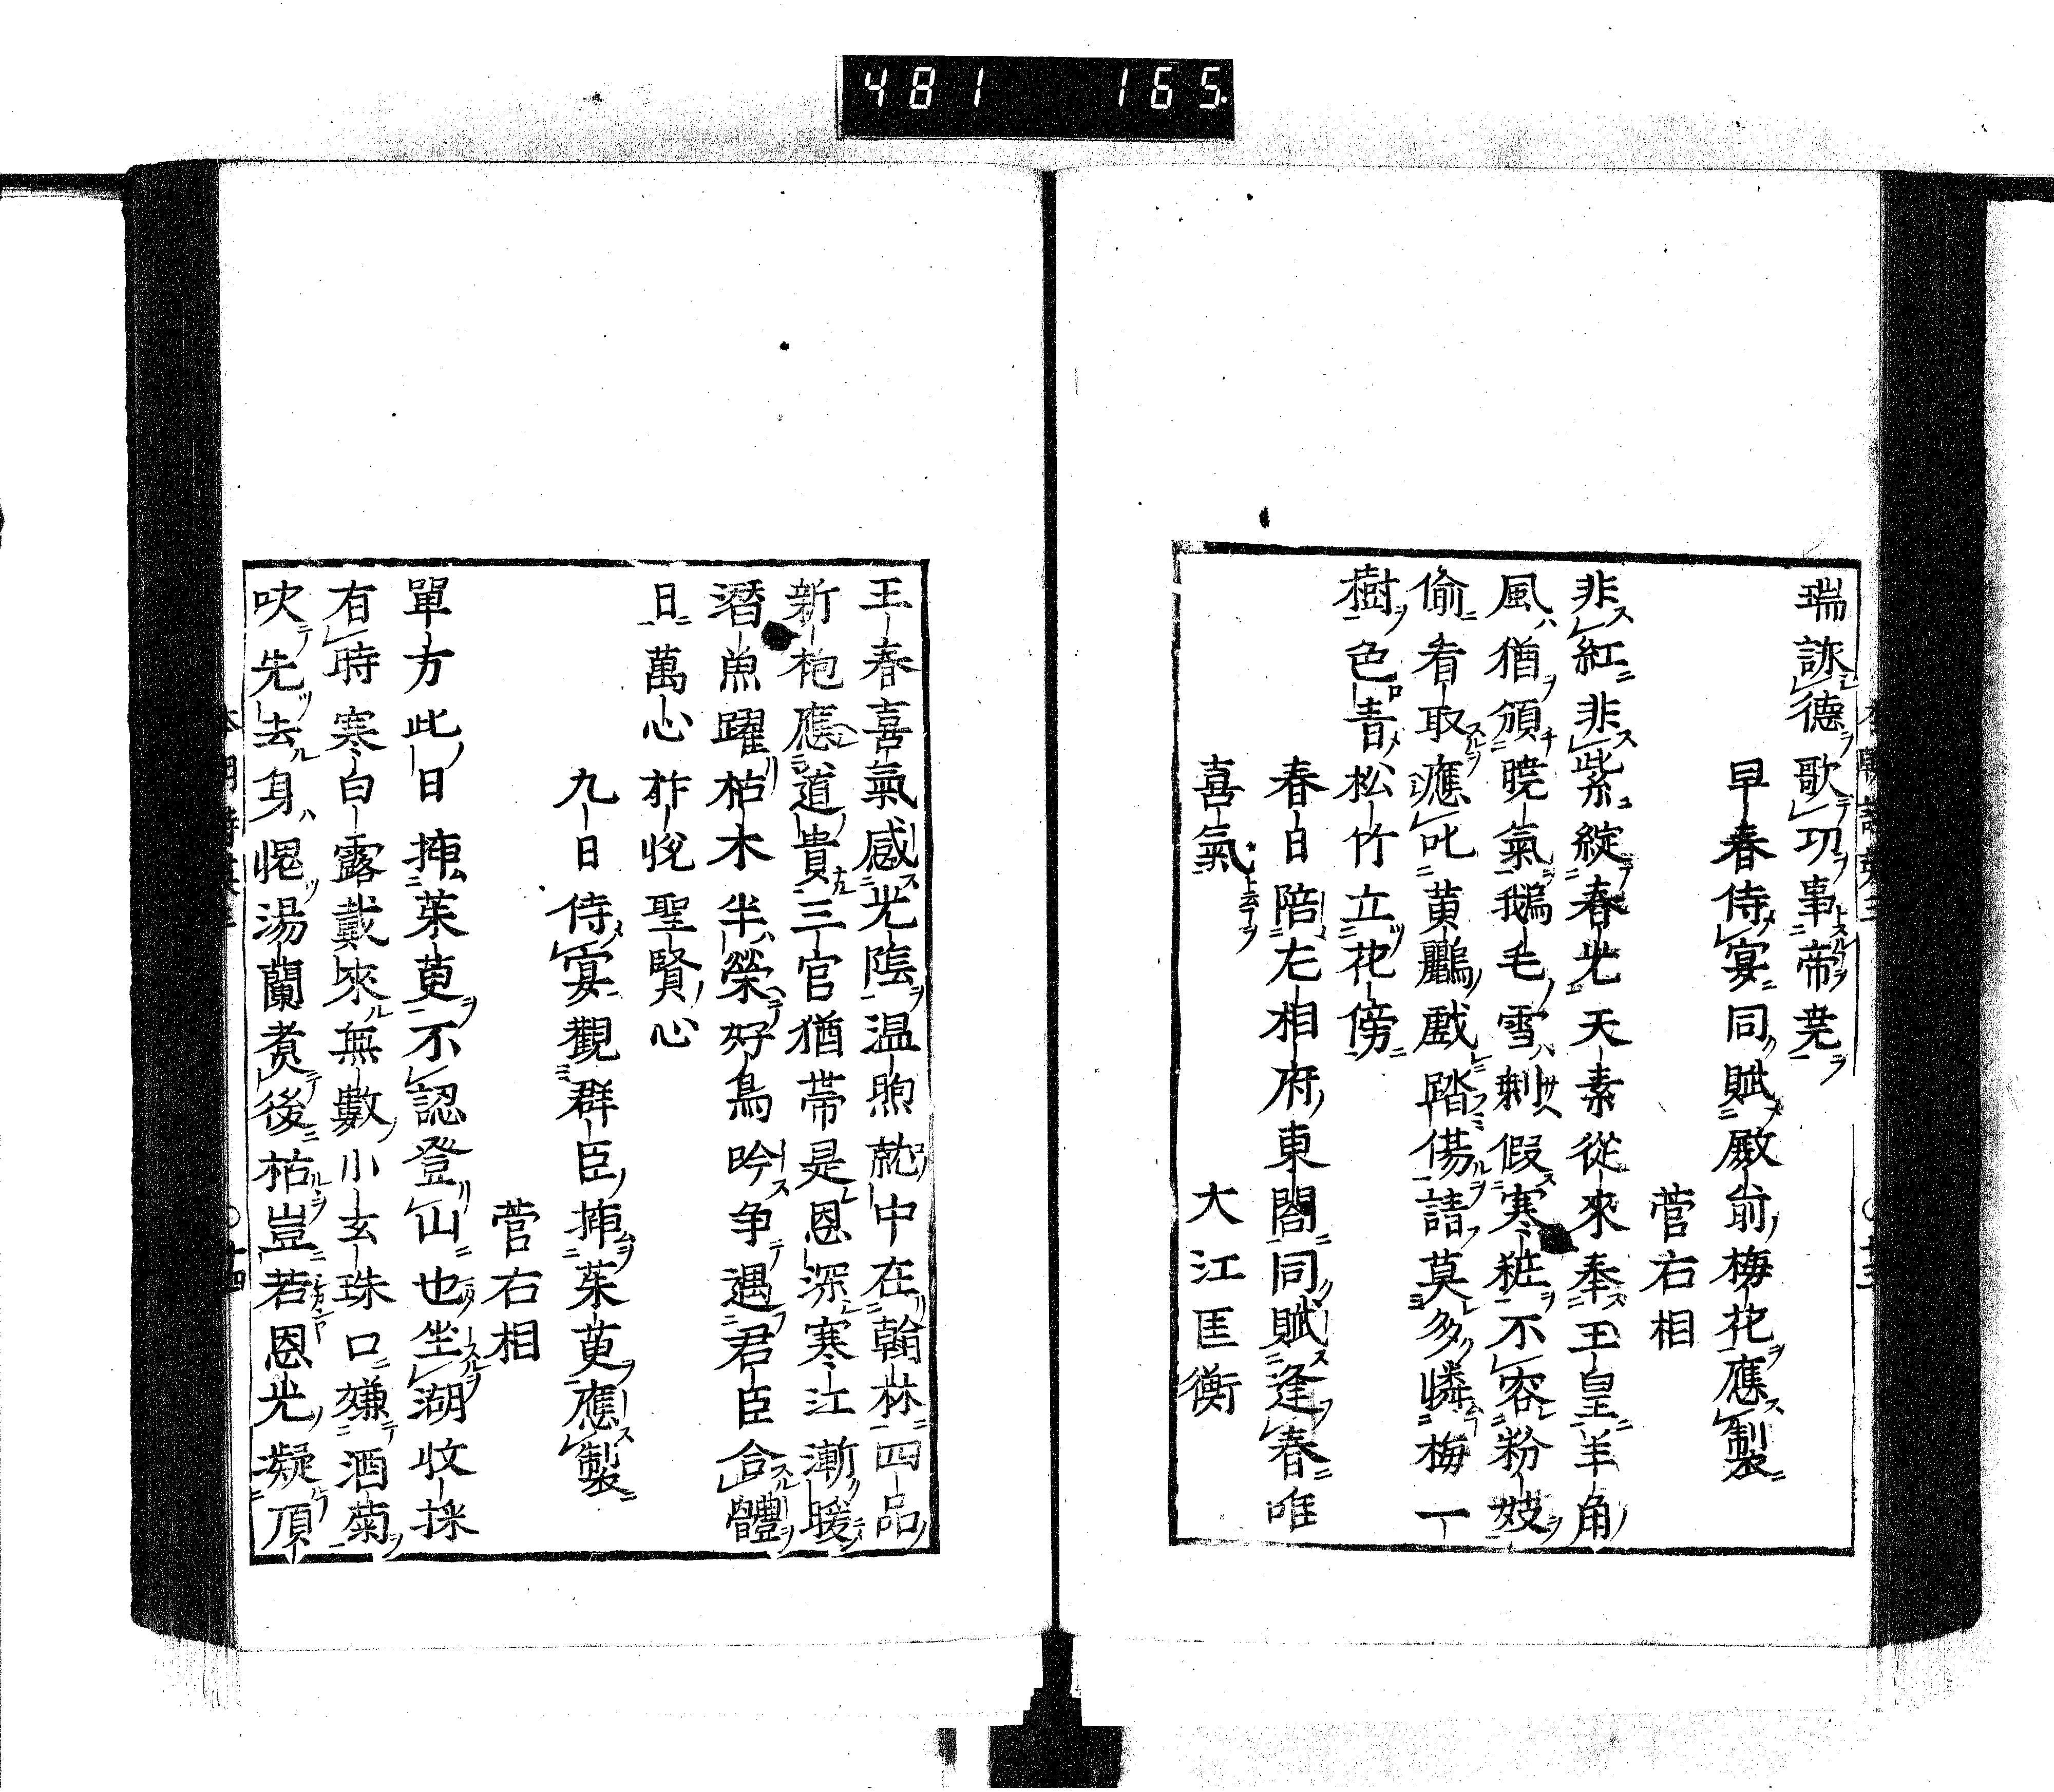 481 165
瑞詠德歌功事帝尭
早春侍宴同賦殿前梅花應製
菅右相
非紅非紫綻春光天素從來奉玉皇羊角
風猶頒曉氣鵝毛雪剰假寒粧不容粉妓
偷看取應叱黄鸝戲踏傷請莫多憐梅一
樹色青松竹立花傍
春日陪左相府東閤同賦逢春唯
喜氣
大江匡衡
王春喜氣感光陰温煦就中在翰林四品
新袍應道貴三官猶帯是恩深寒江漸暖
潛魚躍枯木半榮好鳥吟争遇君臣合體
日萬心祚悅聖賢心
九日侍宴觀群臣挿茱萸應製
菅右相
單方此日挿茱萸不認登山也坐湖收採
有時寒白露戴來無數小玄珠口嫌酒菊
吹先去身愧湯蘭煑後枯豈若恩光凝頂